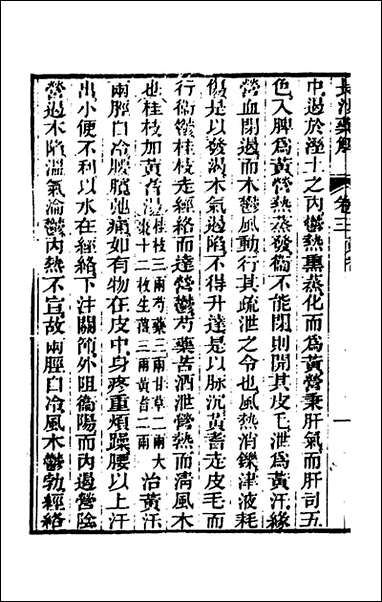 長沙藥解 卷三
中遏於溼土之內鬱熱熏蒸化而為黃營秉肝氣而肝司五
色入脾為黃營熱蒸發衞不能閉則開其皮毛泄為黃汗緣
營血閉遏而木鬱風動行其疏泄之令也風熱消鑠津液耗
傷是以發渴木氣遏陷不得升達是以脈沉黃耆走皮毛而
行衞鬱桂枝走經絡而達營鬱芍藥苦酒泄營熱而淸風木
也桂枝加黃耆湯桂枝三兩芍藥三兩甘草二兩大棗十二枚生薑三兩黃耆二兩治黃汗
兩脛自冷腰髖弛痛如有物在皮中身疼重煩躁腰以上汗
出小便不利以水在經絡下注關節外阻衞陽而內遏營陰
營遏木陷溫氣淪鬱內熱不宣故兩脛自冷風木鬱勃經絡